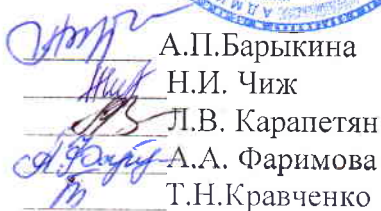 А.П.Барыкина
Н.И. Чиж
Л.В. Карапетян
А.А. Фаримова
Т.Н.Кравченко